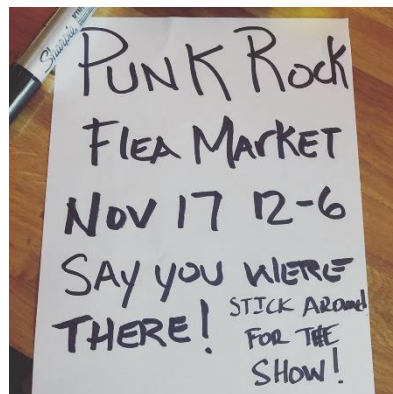 Sharpie
PUNK ROCK
FLEA MARKET
NOV 17 12-6
SAY YOU WERE
THERE!
STICK AROUND
FOR THE
SHOW!